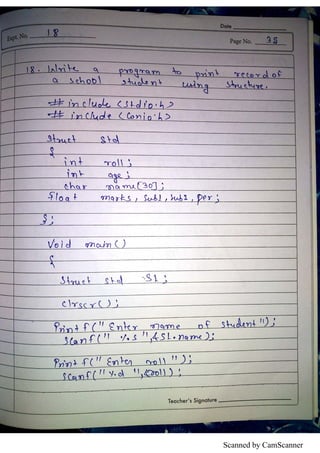 Date
Expt. No. 18
Page No. 35
18. Write a program to print record of
a school student using structure.
# include <stdio.h>
# include <conio.h>
struct std
{
int roll;
int age;
char name[30];
float marks, sub1, sub2, per;
};
Void main()
{
Struct std S1;
clrscr();
Printf("Enter name of student");
Scanf("%s",&S1.name);
Printf("Enter roll");
Scanf("%d",&roll);
Teacher's Signature
Scanned by CamScanner